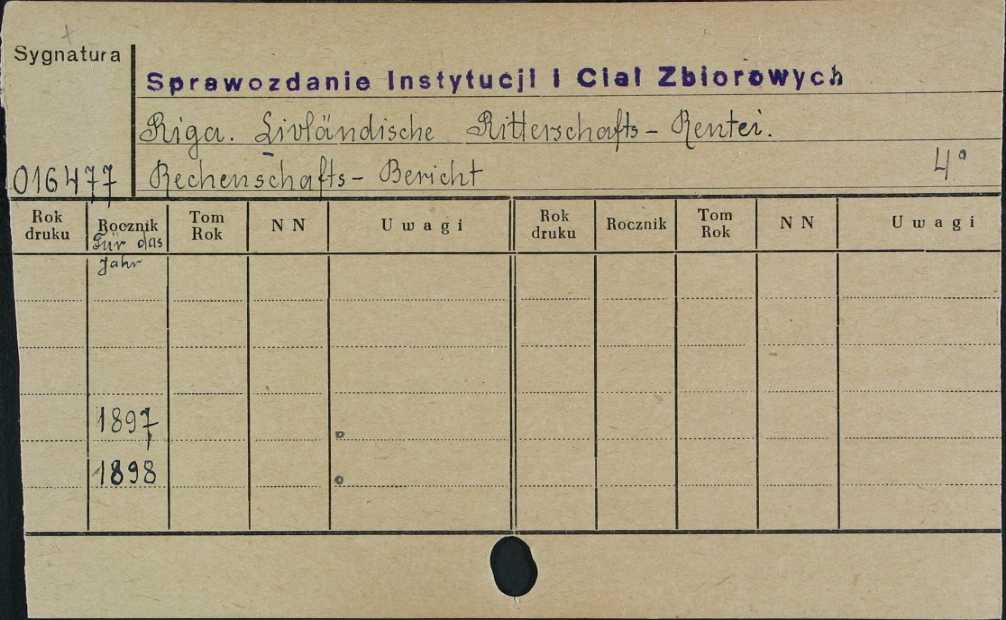 Sygnatura
Sprawozdanie Instytucji i Ciał Zbiorowych
Riga. Livländische Ritterschafts- Rentei.
016477 Rechenschafts- Bericht 4°
Rok druku Rocznik Tom Rok N N Uwagi Rok druku Rocznik Tom Rok N N Uwagi
Für das
Jahr
1897
1898